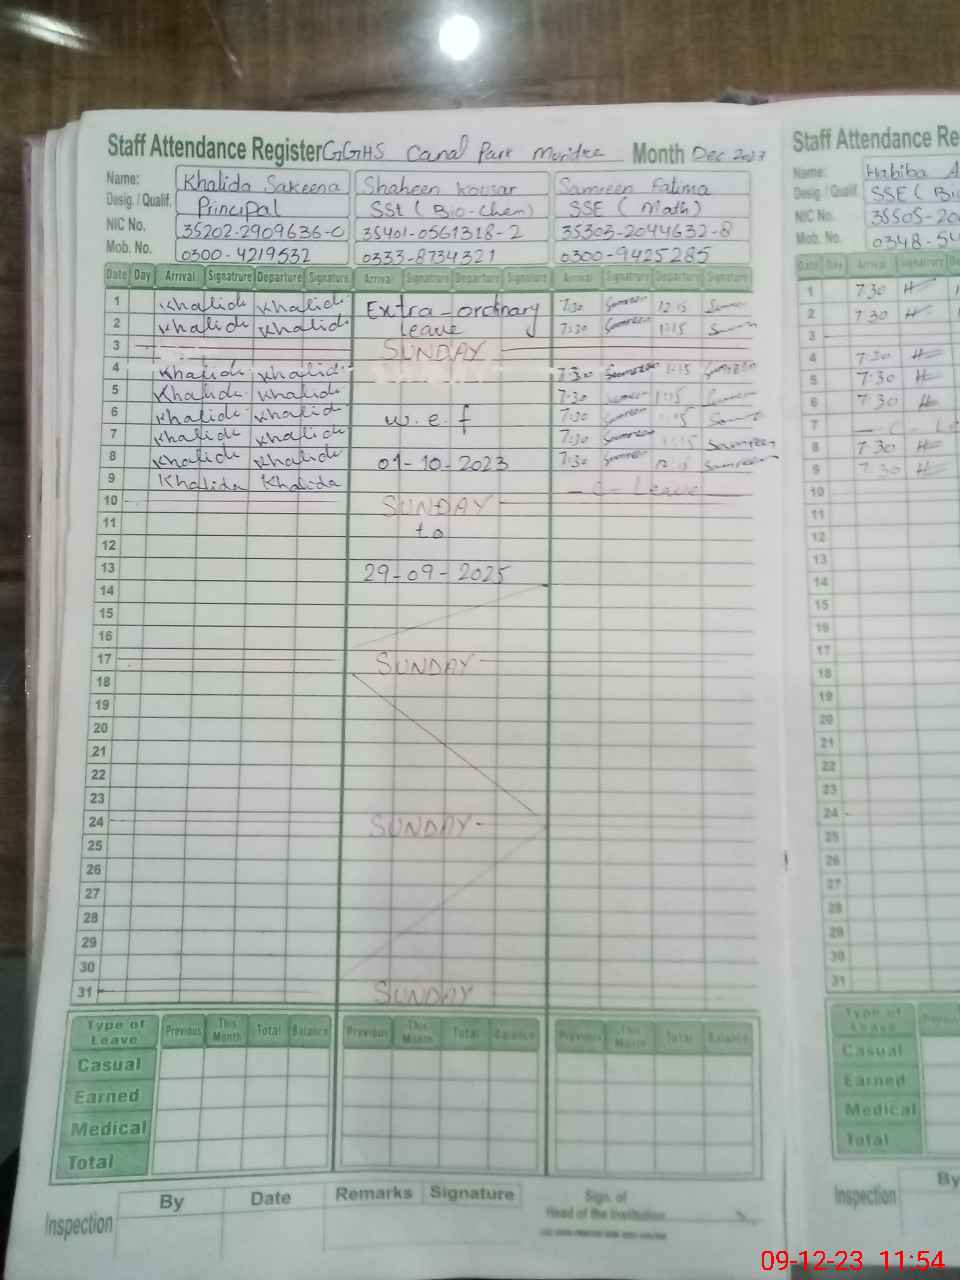 Staff Attendance Register GGHS Canal Park Muridke Month Dec 2023
Name: Khalida Sakeena Shaheen Kousar Samreen Fatima
Desig. / Qualif. Principal SSt (Bio-Chem) SSE (Math)
NIC No. 35202-2909636-0 35401-0561318-2 35303-2044632-8
Mob. No. 0300-4219532 0333-8734321 0300-9425285
Date Day Arrival Signature Departure Signature Arrival Signature Departure Signature Arrival Signature Departure Signature
1 Khalida Khalida Extra-ordinary 7:30 Samreen 12:15
2 Khalida Khalida Leave 7:30 Samreen 1:15
3 SUNDAY
4 Khalida Khalida 7:30 Samreen 1:15 Samreen
5 Khalida Khalida 7:30 1:15
6 Khalida Khalida w.e.f 7:30 Samreen 1:15
7 Khalida Khalida 7:30 Samreen 1:15 Samreen
8 Khalida Khalida 01-10-2023 7:30 Samreen 12:15 Samreen
9 Khalida Khalida - C - Leave
10 SUNDAY
11 to
12
13 29-09-2025
14
15
16
17 SUNDAY
18
19
20
21
22
23
24 SUNDAY
25
26
27
28
29
30
31 SUNDAY
Type of Leave Previous This Month Total Balance Previous This Month Total Balance Previous This Month Total Balance
Casual
Earned
Medical
Total
Inspection By Date Remarks Signature Sign. of Head of the Institution
Staff Attendance Re
Name: Habiba A
Desig / Qualif. SSE (Bio
NIC No. 35505-20
Mob. No. 0348-54
Date Day Arrival Signature De
1 7:30 H
2 7:30 H
3
4 7:30 H
5 7:30 H
6 7:30 H
7 - C - Le
8 7:30 H
9 7:30 H
10
11
12
13
14
15
16
17
18
19
20
21
22
23
24
25
26
27
28
29
30
31
Type of Leave Previous
Casual
Earned
Medical
Total
Inspection By
09-12-23 11:54